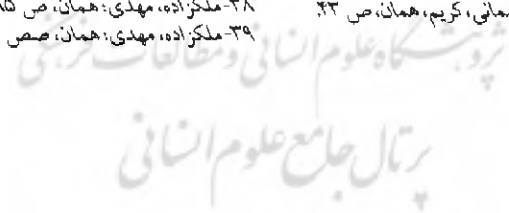 ۳۸- ملکزاده، مهدی: همان، ص ۸۵
۳۹- ملکزاده، مهدی: همان، صص
مانی، کریم، همان، ص ۴۳
پژوهشگاه علوم انسانی و مطالعات فرهنگی
پرتال جامع علوم انسانی